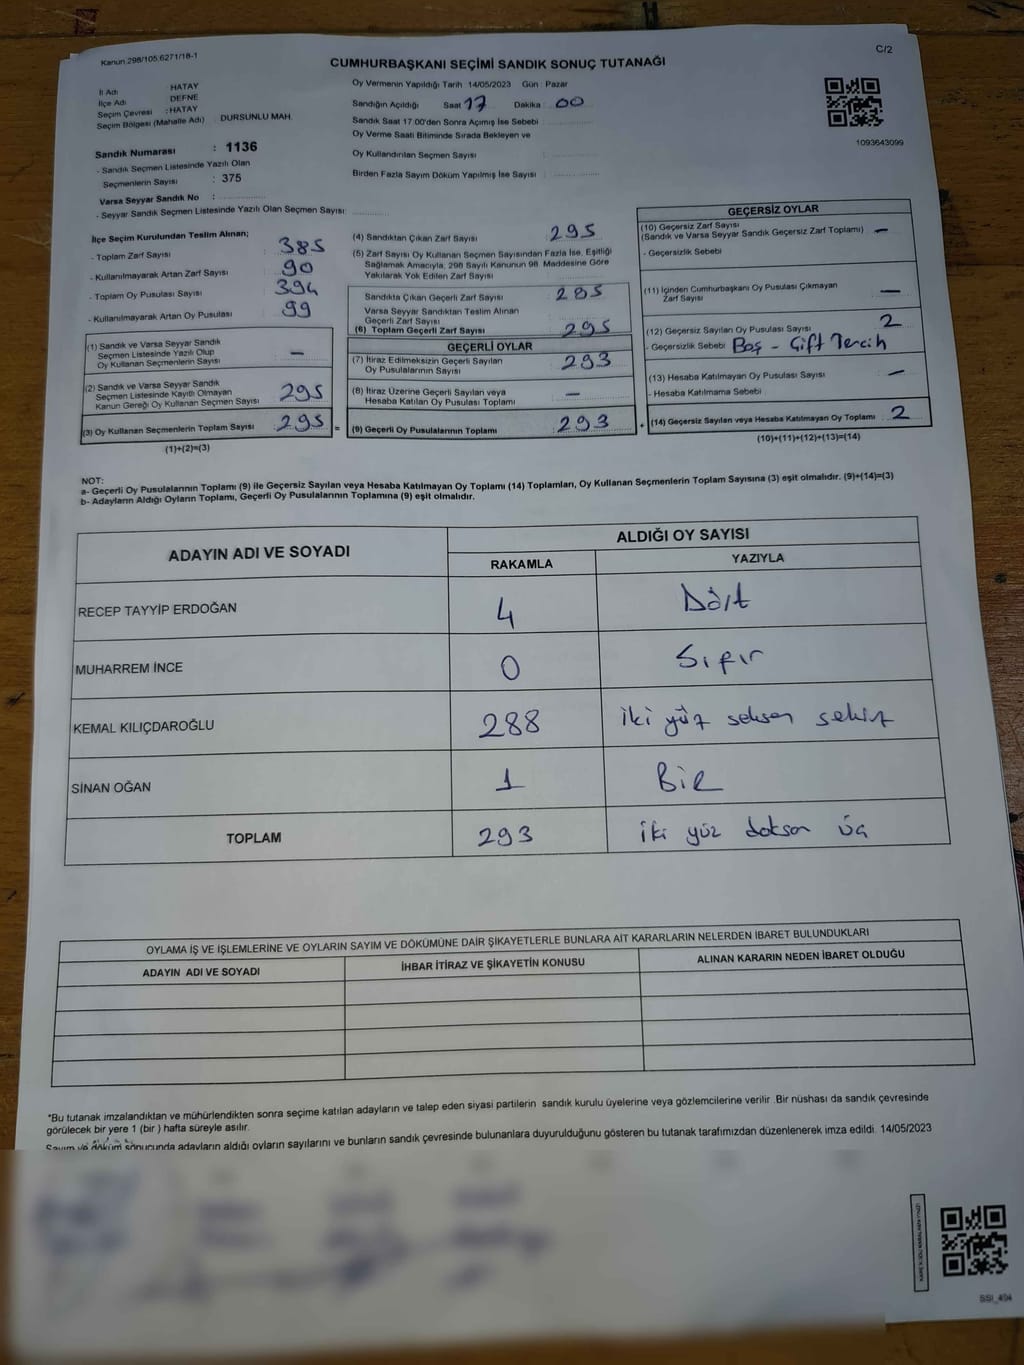 Kanun 298/105,6271/18-1
C/2
CUMHURBAŞKANI SEÇİMİ SANDIK SONUÇ TUTANAĞI
İl Adı HATAY
İlçe Adı DEFNE
Seçim Çevresi : HATAY
Seçim Bölgesi (Mahalle Adı) : DURSUNLU MAH.
Sandık Numarası : 1136
- Sandık Seçmen Listesinde Yazılı Olan
Seçmenlerin Sayısı : 375
Varsa Seyyar Sandık No :
- Seyyar Sandık Seçmen Listesinde Yazılı Olan Seçmen Sayısı:
Oy Vermenin Yapıldığı Tarih 14/05/2023 Gün : Pazar
Sandığın Açıldığı Saat 17 Dakika : 00
Sandık Saat 17.00'den Sonra Açılmış İse Sebebi :
Oy Verme Saati Bitiminde Sırada Bekleyen ve
Oy Kullandırılan Seçmen Sayısı :
Birden Fazla Sayım Döküm Yapılmış İse Sayısı :
1093643099
İlçe Seçim Kurulundan Teslim Alınan;
- Toplam Zarf Sayısı : 385
- Kullanılmayarak Artan Zarf Sayısı : 90
- Toplam Oy Pusulası Sayısı : 394
- Kullanılmayarak Artan Oy Pusulası : 99
(1) Sandık ve Varsa Seyyar Sandık
Seçmen Listesinde Yazılı Olup
Oy Kullanan Seçmenlerin Sayısı : -
(2) Sandık ve Varsa Seyyar Sandık
Seçmen Listesinde Kayıtlı Olmayan
Kanun Gereği Oy Kullanan Seçmen Sayısı : 295
(3) Oy Kullanan Seçmenlerin Toplam Sayısı : 295 =
(1)+(2)=(3)
(4) Sandıktan Çıkan Zarf Sayısı : 295
(5) Zarf Sayısı Oy Kullanan Seçmen Sayısından Fazla İse, Eşitliği
Sağlamak Amacıyla, 298 Sayılı Kanunun 98. Maddesine Göre
Yakılarak Yok Edilen Zarf Sayısı :
Sandıkta Çıkan Geçerli Zarf Sayısı :
Varsa Seyyar Sandıktan Teslim Alınan
Geçerli Zarf Sayısı :
(6) Toplam Geçerli Zarf Sayısı : 295
GEÇERLİ OYLAR
(7) İtiraz Edilmeksizin Geçerli Sayılan
Oy Pusulalarının Sayısı : 293
(8) İtiraz Üzerine Geçerli Sayılan veya
Hesaba Katılan Oy Pusulası Toplamı : -
(9) Geçerli Oy Pusulalarının Toplamı : 293 +
GEÇERSİZ OYLAR
(10) Geçersiz Zarf Sayısı
(Sandık ve Varsa Seyyar Sandık Geçersiz Zarf Toplamı) : -
- Geçersizlik Sebebi
(11) İçinden Cumhurbaşkanı Oy Pusulası Çıkmayan
Zarf Sayısı : -
(12) Geçersiz Sayılan Oy Pusulası Sayısı : 2
- Geçersizlik Sebebi Boş - Çift Tercih
(13) Hesaba Katılmayan Oy Pusulası Sayısı : -
- Hesaba Katılmama Sebebi
(14) Geçersiz Sayılan veya Hesaba Katılmayan Oy Toplamı : 2
(10)+(11)+(12)+(13)=(14)
NOT:
a- Geçerli Oy Pusulalarının Toplamı (9) ile Geçersiz Sayılan veya Hesaba Katılmayan Oy Toplamı (14) Toplamları, Oy Kullanan Seçmenlerin Toplam Sayısına (3) eşit olmalıdır. (9)+(14)=(3)
b- Adayların Aldığı Oyların Toplamı, Geçerli Oy Pusulalarının Toplamına (9) eşit olmalıdır.
ADAYIN ADI VE SOYADI
ALDIĞI OY SAYISI
RAKAMLA YAZIYLA
RECEP TAYYİP ERDOĞAN 4 Dört
MUHARREM İNCE 0 Sıfır
KEMAL KILIÇDAROĞLU 288 iki yüz seksen sekiz
SİNAN OĞAN 1 Bir
TOPLAM 293 iki yüz doksan üç
OYLAMA İŞ VE İŞLEMLERİNE VE OYLARIN SAYIM VE DÖKÜMÜNE DAİR ŞİKAYETLERLE BUNLARA AİT KARARLARIN NELERDEN İBARET BULUNDUKLARI
ADAYIN ADI VE SOYADI İHBAR İTİRAZ VE ŞİKAYETİN KONUSU ALINAN KARARIN NEDEN İBARET OLDUĞU
*Bu tutanak imzalandıktan ve mühürlendikten sonra seçime katılan adayların ve talep eden siyasi partilerin sandık kurulu üyelerine veya gözlemcilerine verilir .Bir nüshası da sandık çevresinde
görülecek bir yere 1 (bir ) hafta süreyle asılır.
Sayım ve döküm sonucunda adayların aldığı oyların sayılarını ve bunların sandık çevresinde bulunanlara duyurulduğunu gösteren bu tutanak tarafımızdan düzenlenerek imza edildi. 14/05/2023
SSI_494